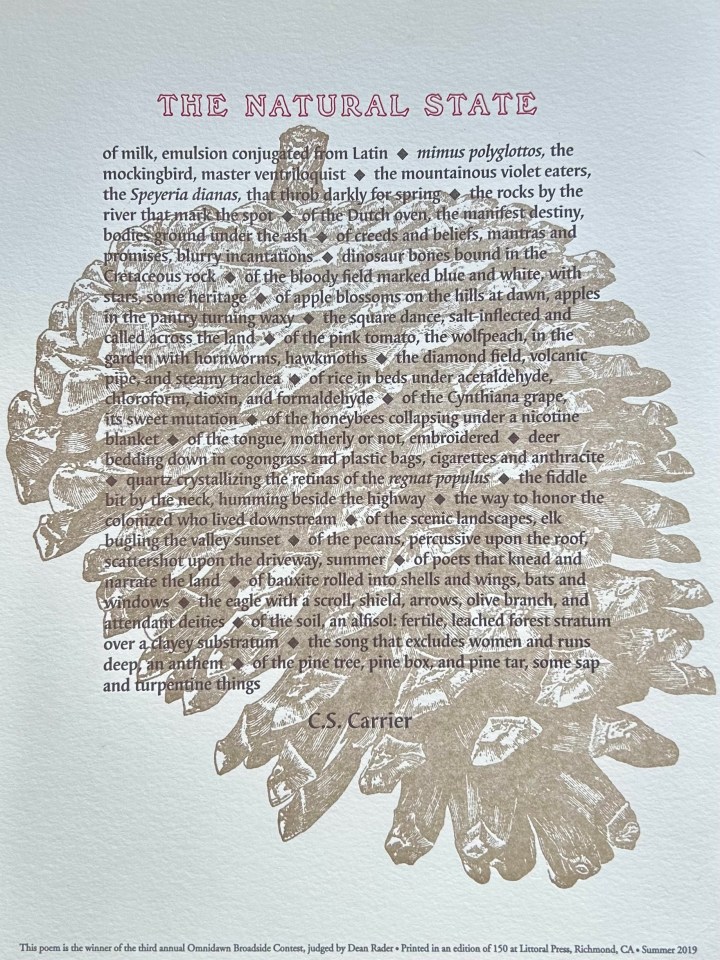 THE NATURAL STATE
of milk, emulsion conjugated from Latin ◆ mimus polyglottos, the
mockingbird, master ventriloquist ◆ the mountainous violet eaters,
the Speyeria dianas, that throb darkly for spring ◆ the rocks by the
river that mark the spot ◆ of the Dutch oven, the manifest destiny,
bodies ground under the ash ◆ of creeds and beliefs, mantras and
promises, blurry incantations ◆ dinosaur bones bound in the
Cretaceous rock ◆ of the bloody field marked blue and white, with
stars, some heritage ◆ of apple blossoms on the hills at dawn, apples
in the pantry turning waxy ◆ the square dance, salt-inflected and
called across the land ◆ of the pink tomato, the wolfpeach, in the
garden with hornworms, hawkmoths ◆ the diamond field, volcanic
pipe, and steamy trachea ◆ of rice in beds under acetaldehyde,
chloroform, dioxin, and formaldehyde ◆ of the Cynthiana grape,
its sweet mutation ◆ of the honeybees collapsing under a nicotine
blanket ◆ of the tongue, motherly or not, embroidered ◆ deer
bedding down in cogongrass and plastic bags, cigarettes and anthracite
◆ quartz crystallizing the retinas of the regnat populus ◆ the fiddle
bit by the neck, humming beside the highway ◆ the way to honor the
colonized who lived downstream ◆ of the scenic landscapes, elk
bugling the valley sunset ◆ of the pecans, percussive upon the roof,
scattershot upon the driveway, summer ◆ of poets that knead and
narrate the land ◆ of bauxite rolled into shells and wings, bats and
windows ◆ the eagle with a scroll, shield, arrows, olive branch, and
attendant deities ◆ of the soil, an alfisol: fertile, leached forest stratum
over a clayey substratum ◆ the song that excludes women and runs
deep, an anthem ◆ of the pine tree, pine box, and pine tar, some sap
and turpentine things
C.S. Carrier
This poem is the winner of the third annual Omnidawn Broadside Contest, judged by Dean Rader • Printed in an edition of 150 at Littoral Press, Richmond, CA • Summer 2019